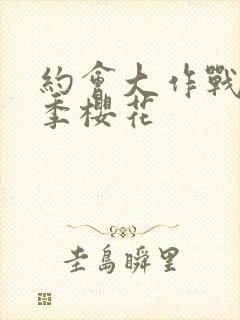 約會大作戰
季櫻花
圭島瞬里